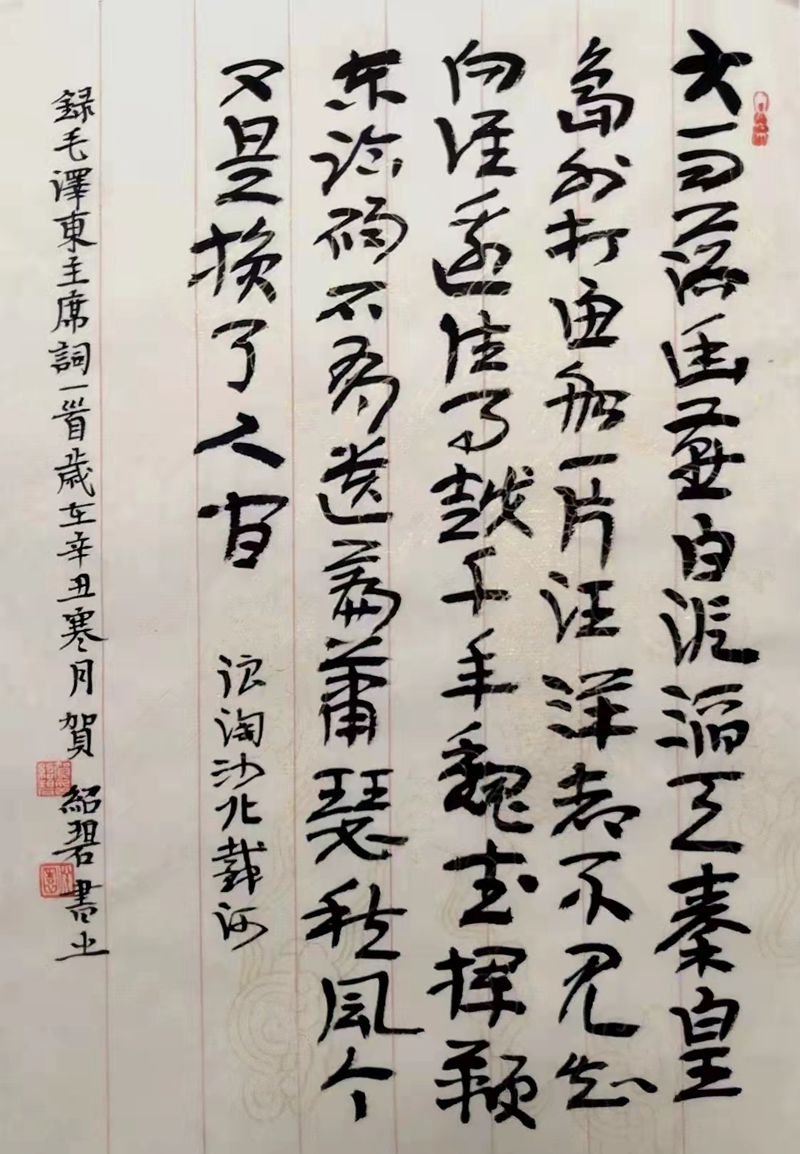 大雨落幽燕白浪滔天秦皇
島外打魚船一片汪洋都不見知
向誰邊往事越千年魏武揮鞭
東臨碣石有遺篇蕭瑟秋風今
又是换了人间
浪淘沙北戴河
録毛澤東主席詞一首歲在辛丑寒月賀紹碧書之